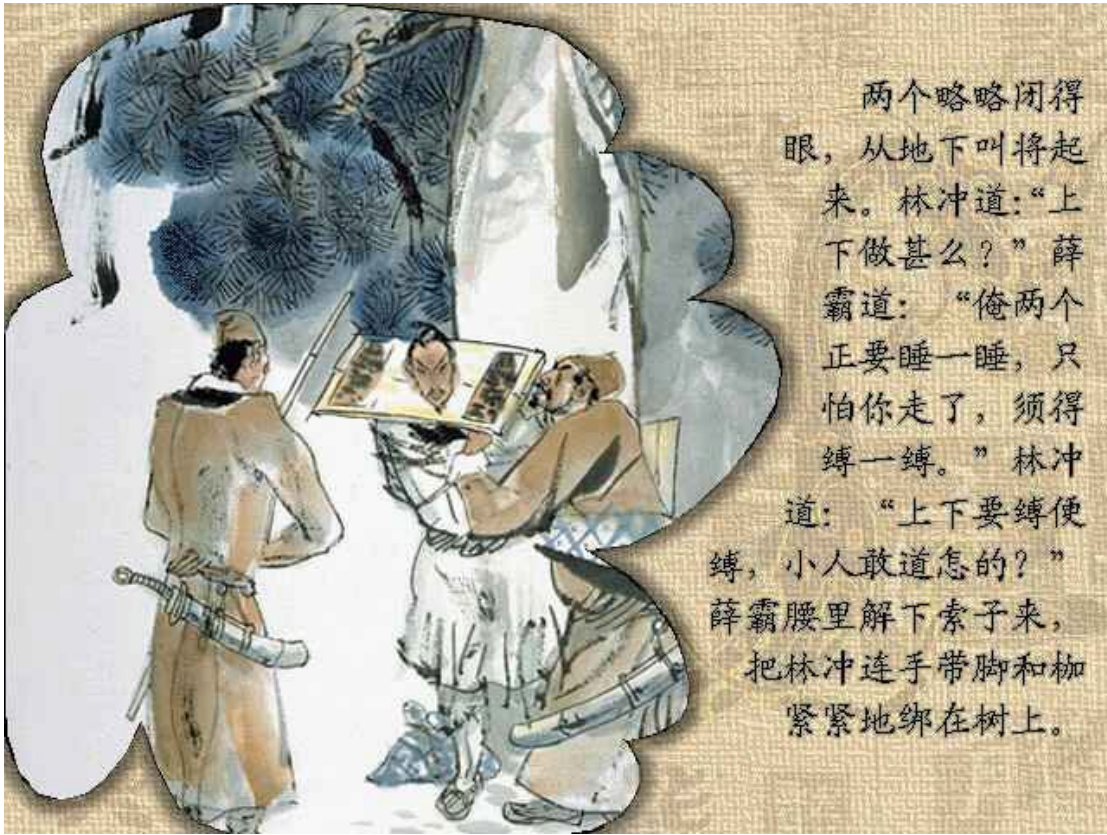 两个略略闭得
眼，从地下叫将起
来。林冲道：“上
下做甚么？”薛
霸道： “俺两个
正要睡一睡，只
怕你走了，须得
缚一缚。”林冲
道： “上下要缚便
缚，小人敢道怎的？”
薛霸腰里解下索子来，
把林冲连手带脚和枷
紧紧地绑在树上。